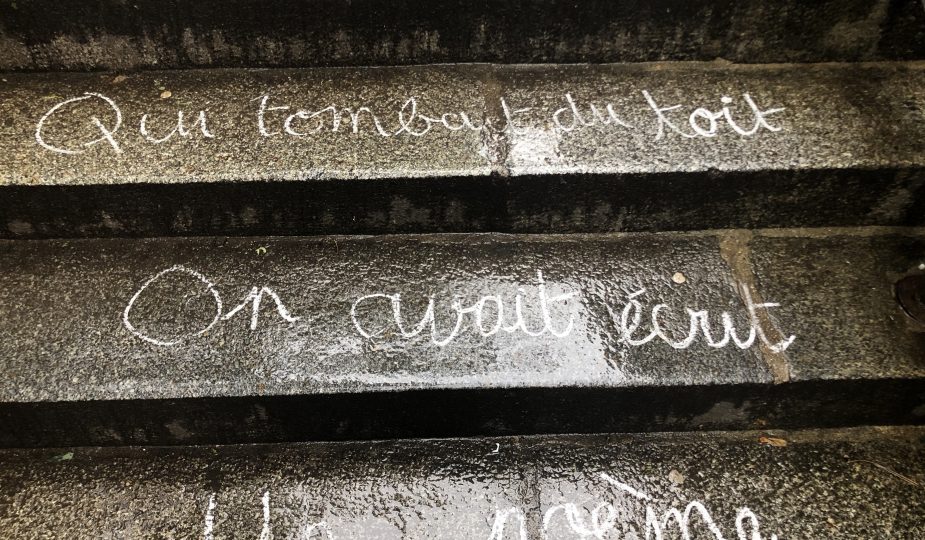 Qui tombait du toit
On avait écrit
Un poème